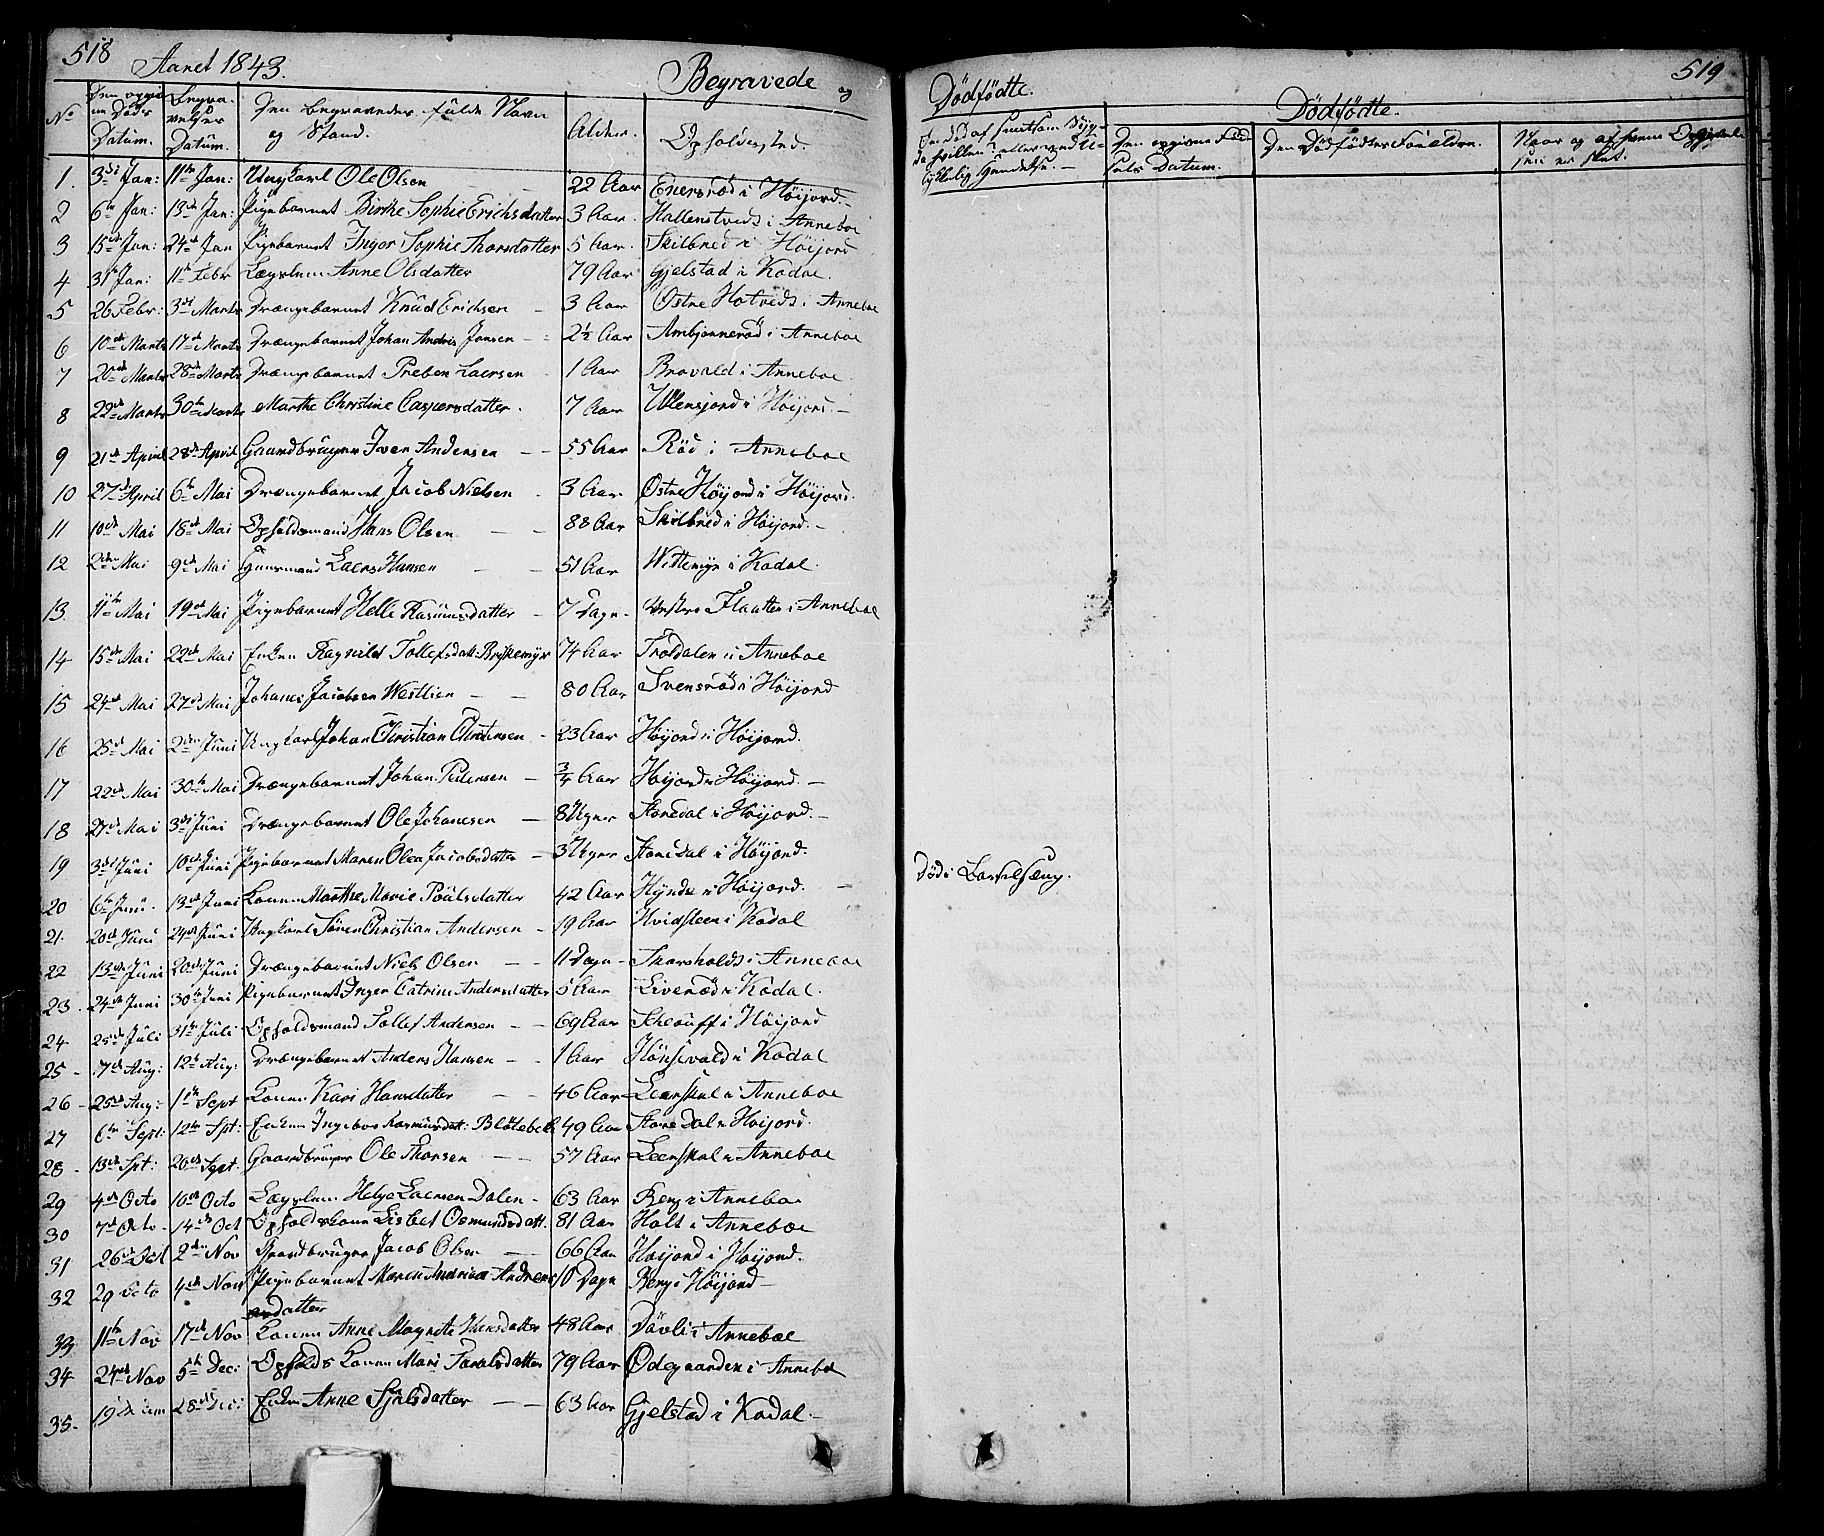 518 Aaret 1843. Begravede og
No Den opgivne Døds Datum. Begravelses Datum. Den begravedes fulde Navn og Stand. Alder. Opholdssted.
1. 3di Jan: 11te Jan: Ungkarl Ole Olsen 22 Aar Enersrød i Høijord.
2 6te Jan: 13de Jan: Pigebarnet Birthe Sophie Erichsdatter 3 Aar. Hallenstvedt i Anneboe
3 15de Jan: 24de Jan Pigebarnet Inger Sophie Thorsdatter 5 Aar. Skilbred i Høijord
4 31te Jan: 11te Febr Lægslem Anne Olsdatter 79 Aar Gjelstad i Kodal.
5 26 Febr: 3di Marts Drængebarnet Knud Erichsen 3 Aar Østre Hotvedt i Anneboe
6 10de Marts 17de Marts Drængebarnet Johan Andris Jansen 2½ Aar Ambjønnerød i Anneboe
7 20de Marts 28de Marts Drængebarnet Preben Laersen 1 Aar Bravald i Anneboe.
8 22de Marts 30te Marts Marthe Christine Caspersdatter. 7 Aar Ulensjord i Høijord.
9 21de April 28de April Gaardbruger Iver Andersen 55 Aar Rød i Anneboe
10 27de April 6te Mai Drængebarnet Jacob Nielsen 3 Aar Østre Høijord i Høijord.
11 10de Mai 18de Mai Opholdsmand Hans Olsen 88 Aar Skilbred i Høijord.
12 2den Mai 9de Mai Huusmand Laers Hansen 51 Aar Wittemyr i Kodal.
13. 11te Mai 19de Mai Pigebarnet Helle Rasmusdatter 7 Dage Vestre Flaatten i Anneboe
14 15de Mai 22de Mai Enken Ragnild Tollefsdatt: Bryskemyr 74 Aar Troldalen i Anneboe
15 24de Mai 27de Mai Johanes Jacobsen Westlien 80 Aar Svensrød i Høijord
16 25de Mai 2den Juni Ungkarl Johan Christian Christensen 23 Aar Høijord i Høijord.
17 22de Mai 30te Mai Drængebarnet Johan Pedersen ¾ Aar Høijord i Høijord.
18 27de Mai 3di Juni Drængebarnet Ole Johanesen 8 Uger Storedal i Høijord.
19 3di Juni 10de Juni Pigebarnet Maren Olea Jacobsdatter 3 Uger Storedal i Høijord.
20 6te Juni. 13de Juni Konen Marthe Marie Poulsdatter 42 Aar Hynde i Høijord.
21. 20de Juni 29de Juni Ungkarl Søren Christian Andersen 19 Aar Hvidsteen i Kodal
22 13de Juni 20de Juni Drængebarnet Niels Olsen 11 Dage Thorsholdt i Anneboe
23. 24de Juni 30te Juni Pigebarnet Inger Catrine Andersdatter 5 Aar Liverød i Kodal.
24 25de Juli 31te Juli Opholdsmand Tollef Andersen 69 Aar Schouff i Høijord
25 7de Aug: 12te Aug: Drængebarnet Anders Hansen 1 Aar Hønsevald i Kodal
26 25de Aug: 1ste Sept Konen Kari Hansdatter 46 Aar Leerskal i Anneboe
27 6te Sept: 12te Spt: Enken Ingebor Rasmusdat: Bløtebek 49 Aar Store Dal i Høijord.
28 13de Spt: 20de Sept. Gaardbruger Ole Thorsen 57 Aar Leerskal i Anneboe
29 4de Octo 10de Octo Lægslem Helge Laersen Dalen 63 Aar Berg i Anneboe
30 7de Octo 14de Oct Opholdskone Lisbet Osmundsdatt. 81 Aar Holt i Anneboe
31 26de Oct 2den Nov Gaardbruger Jacob Olsen 66 Aar Høijord i Høijord.
32 29 Octo 4de Nov Pigebarnet Maren Andriea Andreas 10 Dage Berg i Høijord
andatter
33 11te Nov 17de Nov Konen Anne Magrete Hansdatter 48 Aar Døvle i Anneboe
34 24de Nov 5te Dec: Opholds Konen Mari Taralsdatter 79 Aar Ødegaarden i Anneboe
35. 19 28de Dec: Enken Anne Sjulsdatter 63 Aar Gjelstad i Kodal.
Dødfødte. 519
Dødfødte.
Er død af smitsom Sygdom hvilken? eller ved Ulykkelig Hændelse. Den opgivne Fødsels Datum. Den Dødfødtes Forældre. Naar og af hvem Opgivelsen er skeet.
Død i Barselseng.